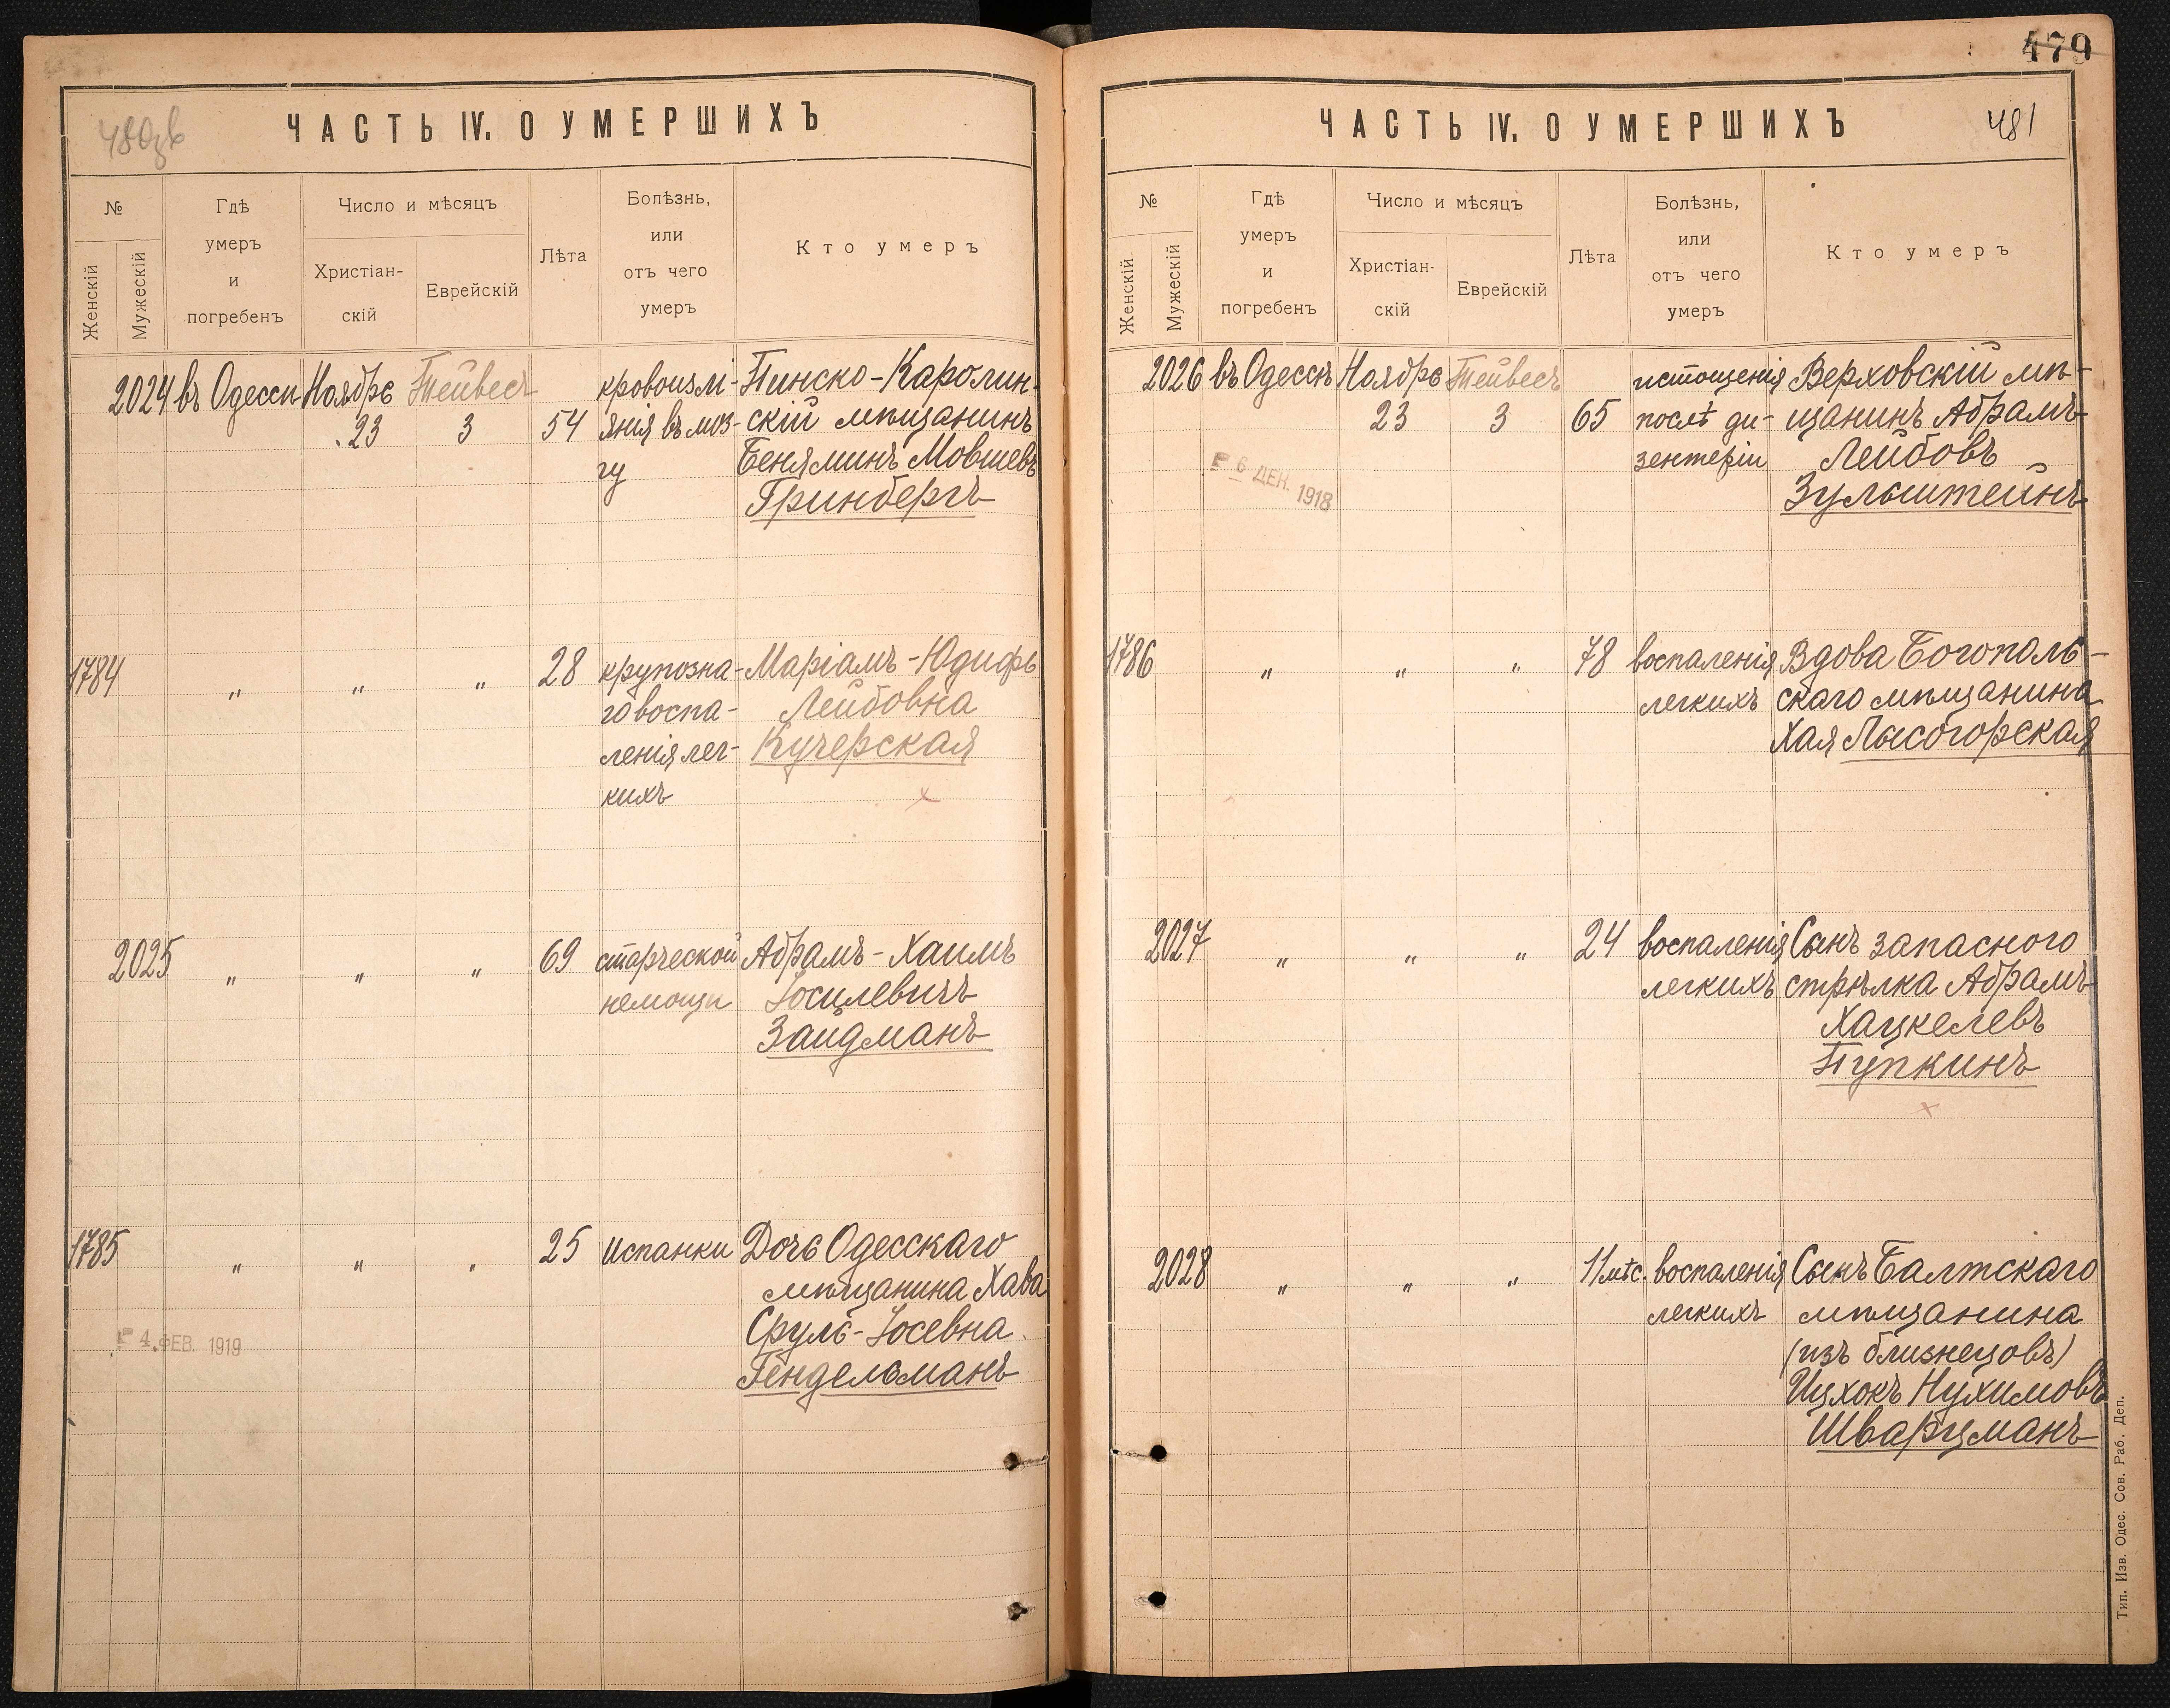 479
480зв
ЧАСТЬ IV. О УМЕРШИХЪ
№
Женскій
Мужескій
Гдѣ
умеръ
и
погребенъ
Число и мѣсяцъ
Христіан-
скій
Еврейскій
Лѣта
Болѣзнь,
или
отъ чего
умеръ
Кто умеръ
2024 въ Одессѣ Ноября Тейвесъ кровоизлі- Пинско-Каролин-
23 3 54 янія въ моз- скій мѣщанинъ
гу Беняминъ Мовшевъ
Гринбергъ
1784 „ „ „ 28 крупозна- Маріамъ-Юдифь
го воспа- Лейбовна
ленія лег- Кучерская
кихъ
2025 „ „ „ 69 старческой Абрамъ-Хаимъ
немощи Іосилевичъ
Зайдманъ
1785 „ „ „ 25 испанки Дочь Одесскаго
мѣщанина Хава
Сруль-Іосевна
4 ФЕВ. 1919
Гендельманъ
ЧАСТЬ IV. О УМЕРШИХЪ
481
№
Женскій
Мужескій
Гдѣ
умеръ
и
погребенъ
Число и мѣсяцъ
Христіан-
скій
Еврейскій
Лѣта
Болѣзнь,
или
отъ чего
умеръ
Кто умеръ
2026 въ Одессѣ Ноября Тейвесъ истощенія Верховскій мѣ-
23 3 65 послѣ ди- щанинъ Абрамъ
зентеріи Лейбовъ
6 ДЕК. 1918
Зульштейнъ
1786 „ „ „ 78 воспаленія Вдова Богополь-
легкихъ скаго мѣщанина
Хая Лысогорская
2027 „ „ „ 24 воспаленія Сынъ запасного
легкихъ стрѣлка Абрамъ
Хацкелевъ
Пупкинъ
2028 „ „ „ 11 мѣс. воспаленія Сынъ Балтскаго
легкихъ мѣщанина
(изъ близнецовъ)
Ицхокъ Нухимовъ
Шварцманъ
Тип. Изв. Одес. Сов. Раб. Деп.